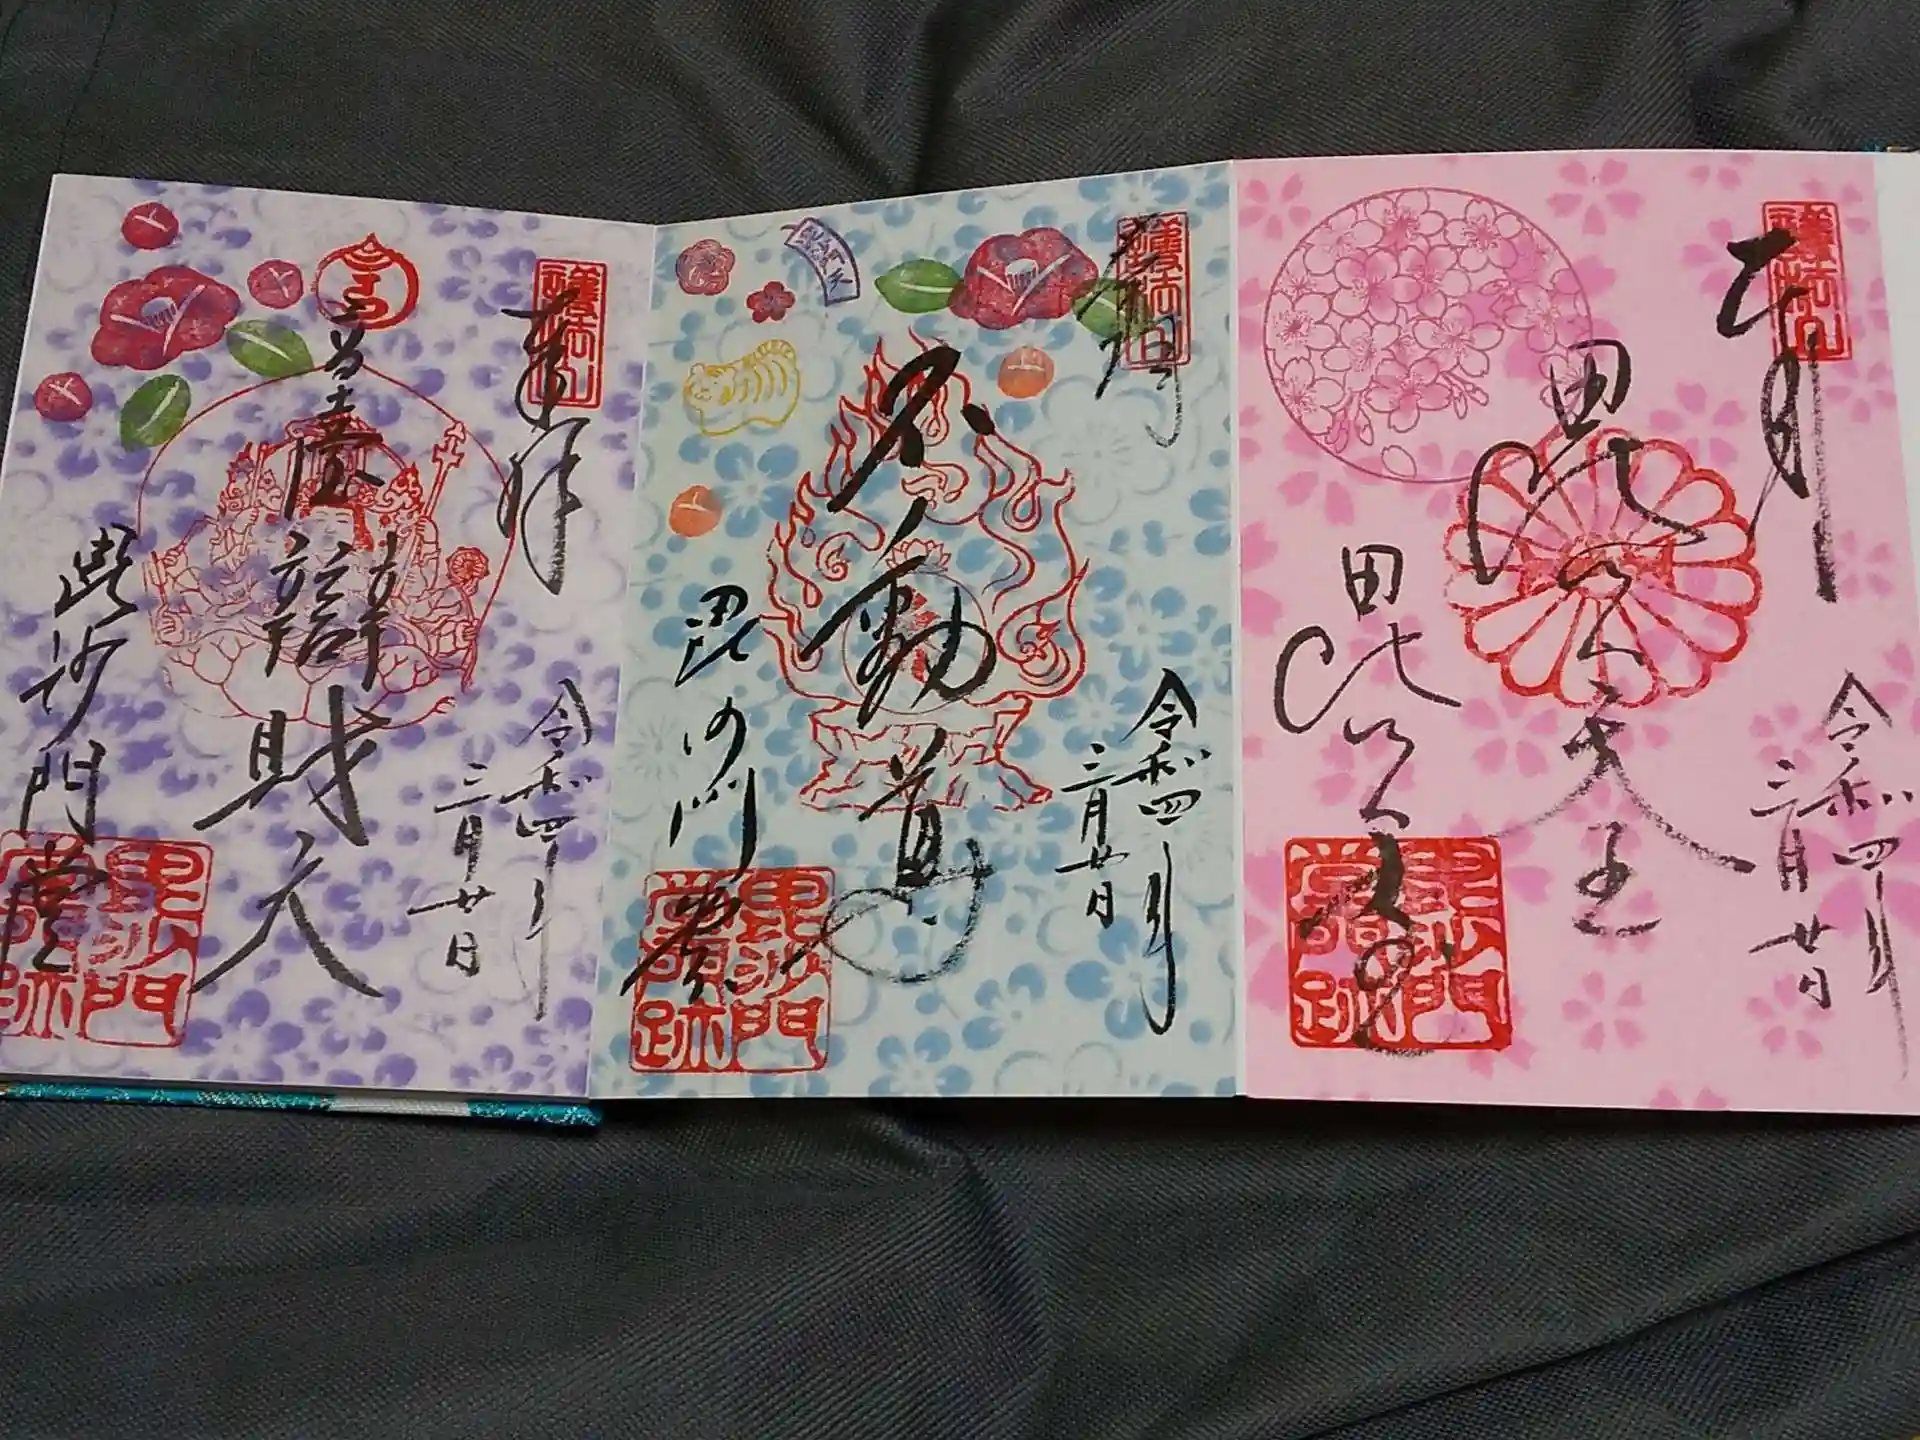 奉拝
令和四年
三月廿日
菩薩
辯財天
毘沙門堂
毘沙門堂跡
護法山
令和四年
三月廿日
不動尊
毘沙門堂
毘沙門堂跡
護法山
令和四年
三月廿日
毘沙門天王
毘沙門堂
毘沙門堂跡